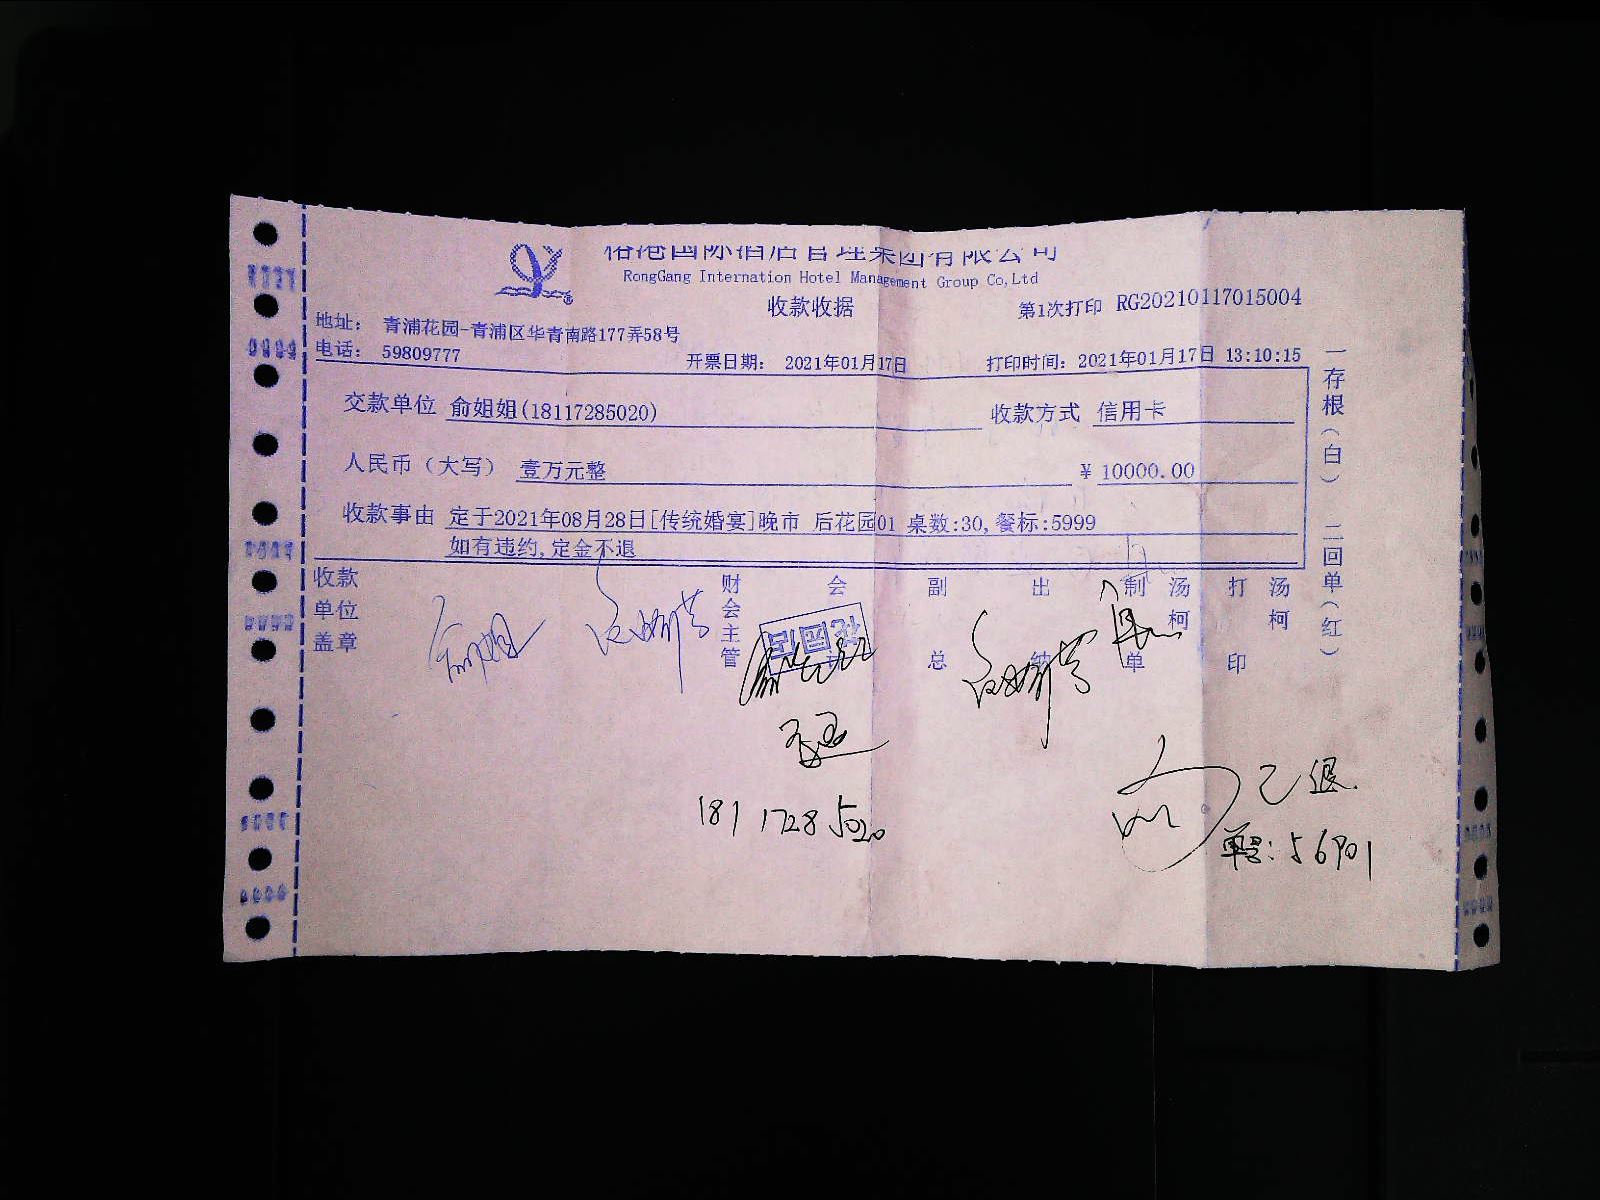 格港国际酒店管理集团有限公司
RongGang Internation Hotel Management Group Co,Ltd
收款收据
第1次打印 RG20210117015004
地址： 青浦花园-青浦区华青南路177弄58号
电话： 59809777
开票日期： 2021年01月17日
打印时间：2021年01月17日 13:10:15
交款单位 俞姐姐(18117285020)
收款方式 信用卡
人民币（大写） 壹万元整
¥ 10000.00
收款事由 定于2021年08月28日[传统婚宴]晚市 后花园01 桌数:30,餐标:5999
如有违约,定金不退
收款单位盖章
财会主管
会计
副总
出纳
制单
汤柯
打印
汤柯
一存根（白） 二回单（红）
花园店
181 1728 5020
已退
单号：56901